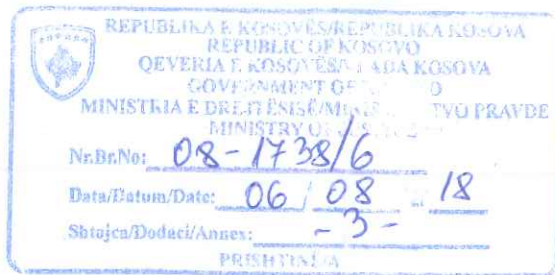 REPUBLIKA E KOSOVËS/REPUBLIKA KOSOVA
REPUBLIC OF KOSOVO
QEVERIA E KOSOVËS/ ADA KOSOVA
GOVERNMENT OF O
MINISTRIA E DREJTËSISË/MINIS TVO PRAVDE
MINISTRY OF
Nr.Br.No: 08-1738/6
Data/Datum/Date: 06/08 18
Shtojca/Dodaci/Annex: -3-
PRISHTINË/A